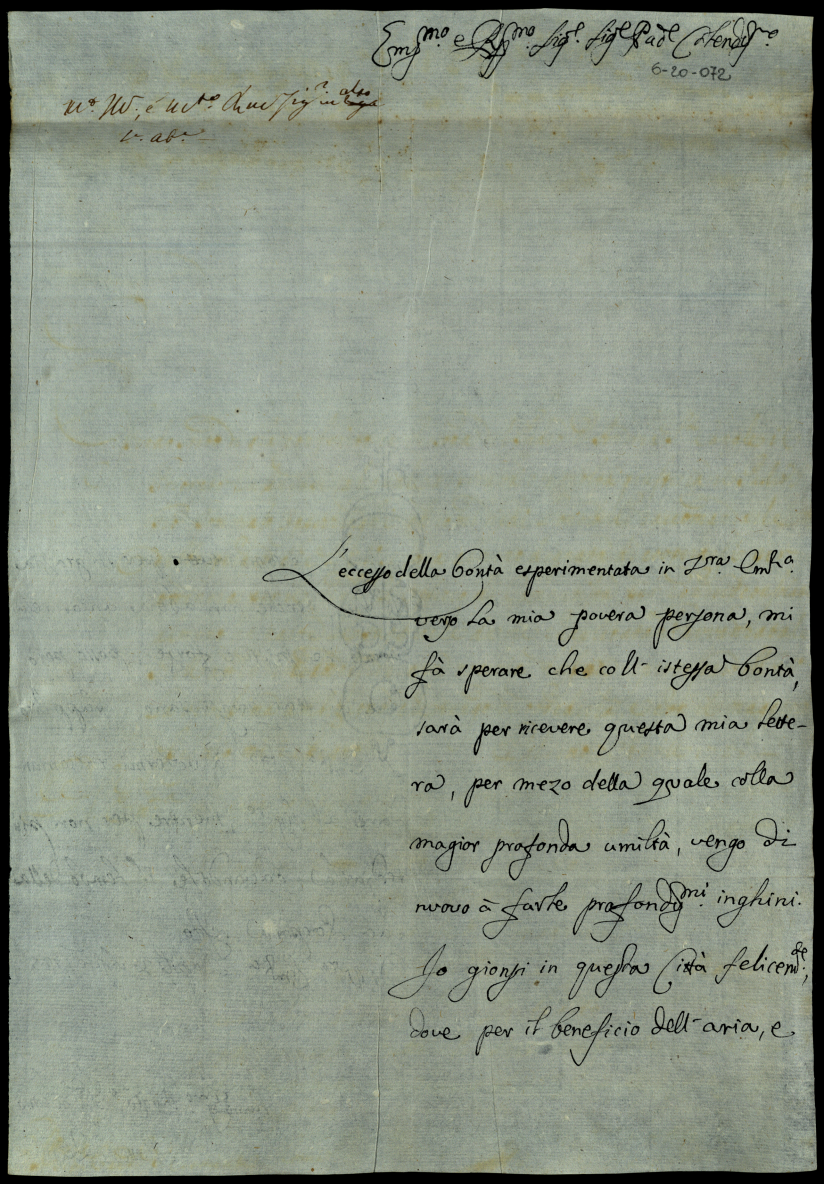 Em̃mo e Rm̃o Sigre Sigre Padre Colendmo
6-20-072
L'eccesso della bontà esperimentata in Vra Emza
verso la mia povera persona, mi
fà sperare che coll'istessa bontà,
sarà per ricevere questa mia lette-
ra, per mezo della quale colla
magior profonda umiltà, vengo di
nuovo à farle profondmi inghini.
Io gionsi in questa Città felicemte,
dove per il beneficio dell'aria, e